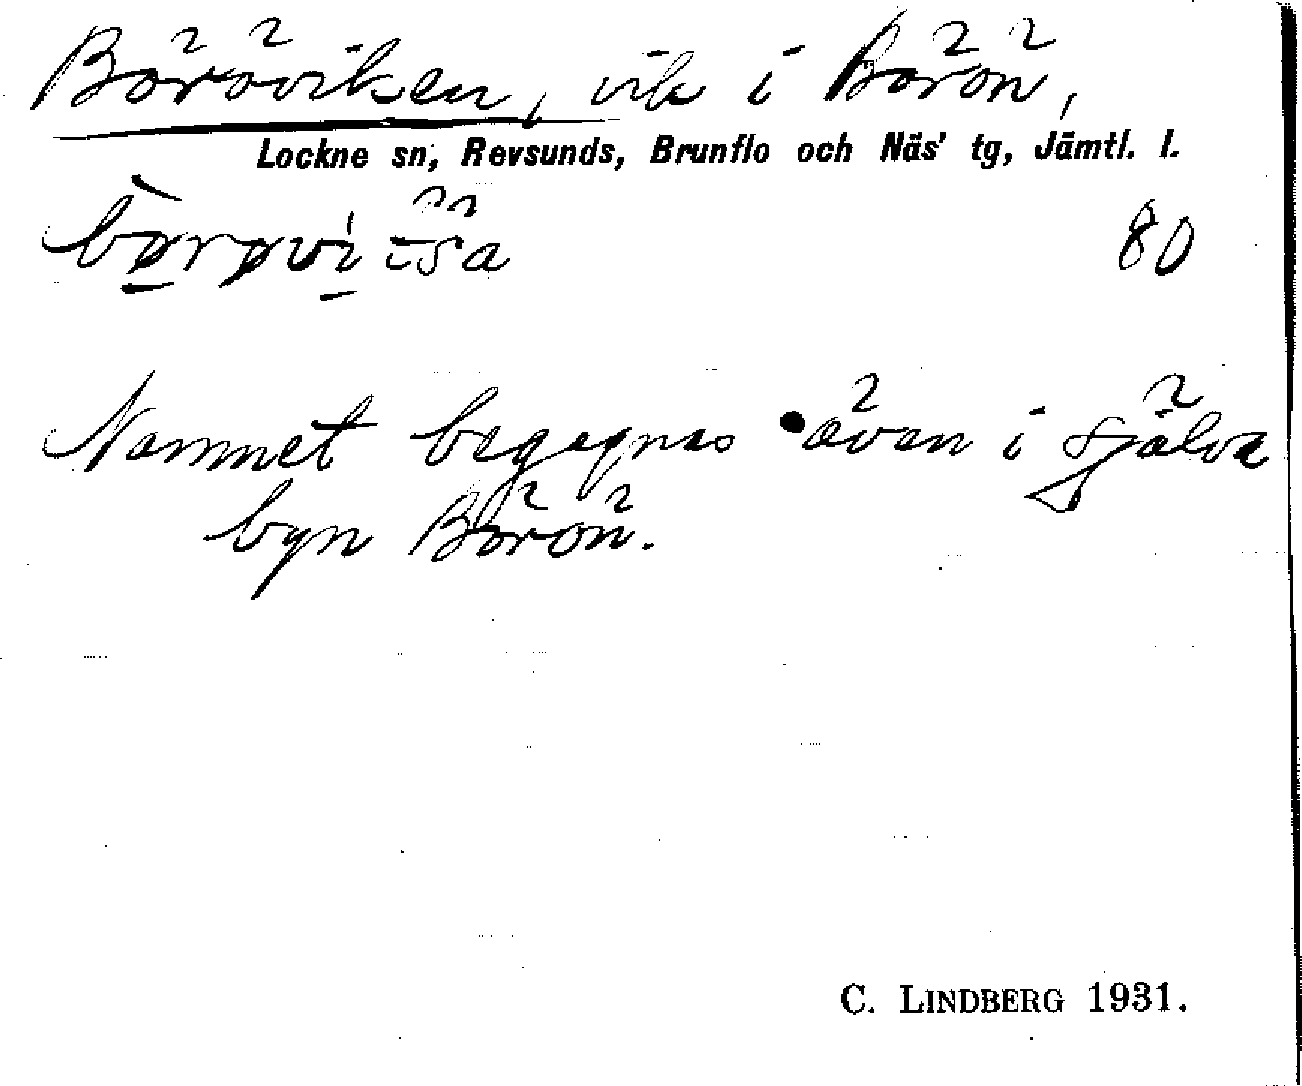 Böröviken, vik i Börön,
Lockne sn, Revsunds, Brunflo och Näs' tg, Jämtl. l.
80
Namnet begagnas även i själva
byn Börön.
C. LINDBERG 1931.